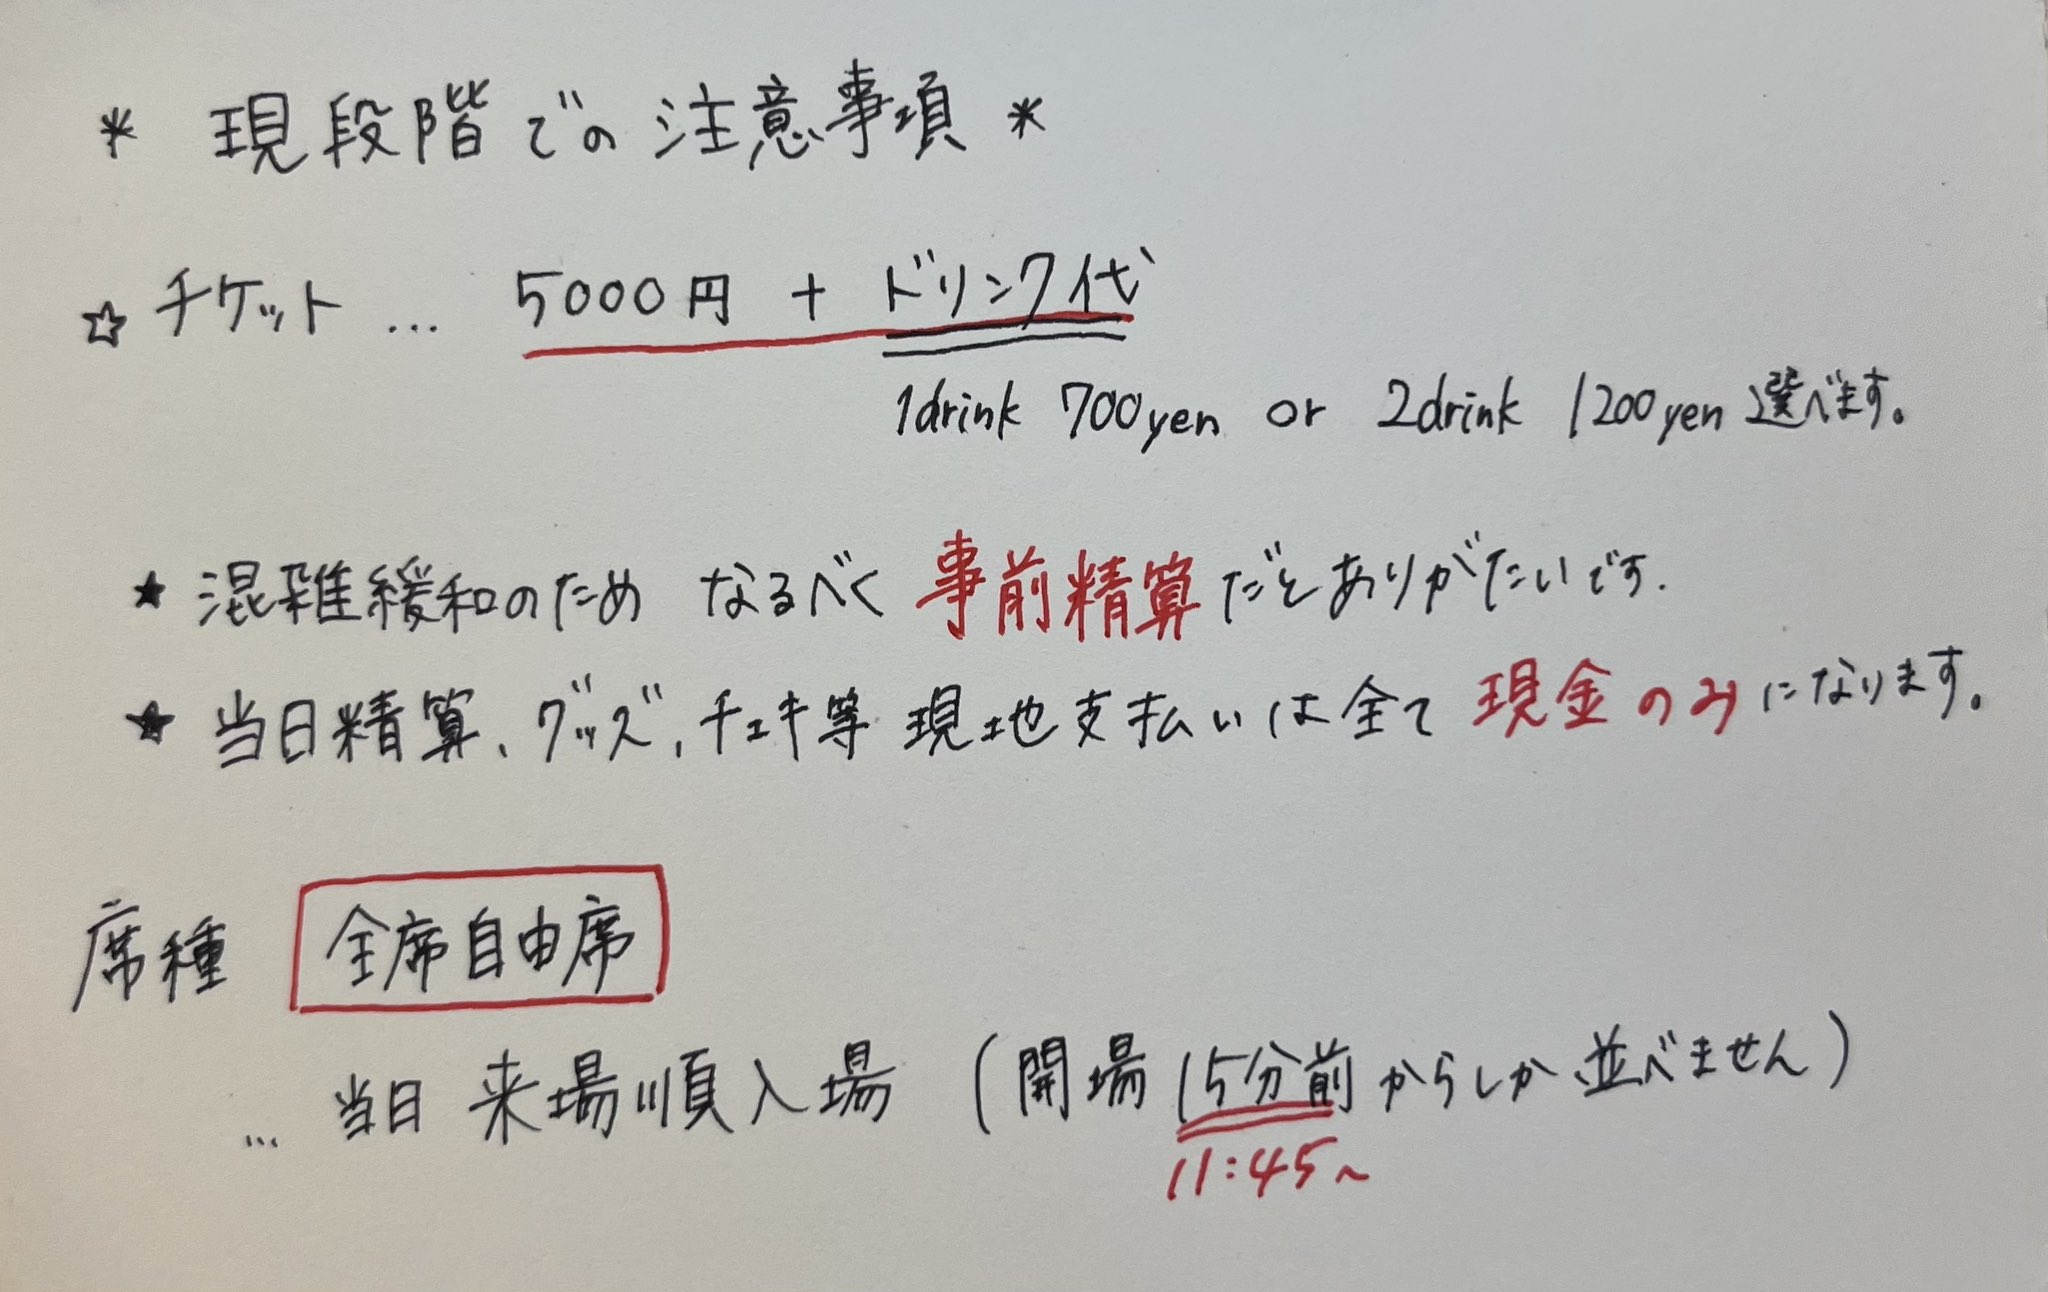 * 現段階での注意事項 *
☆ チケット … 5000円 + ドリンク代
1drink 700yen or 2drink 1200yen 選べます。
★ 混雑緩和のため なるべく 事前精算だとありがたいです.
★ 当日精算、グッズ、チェキ等 現地支払いは全て 現金のみになります。
席種 全席自由席
… 当日 来場順入場 (開場 15分前からしか並べません)
11:45~